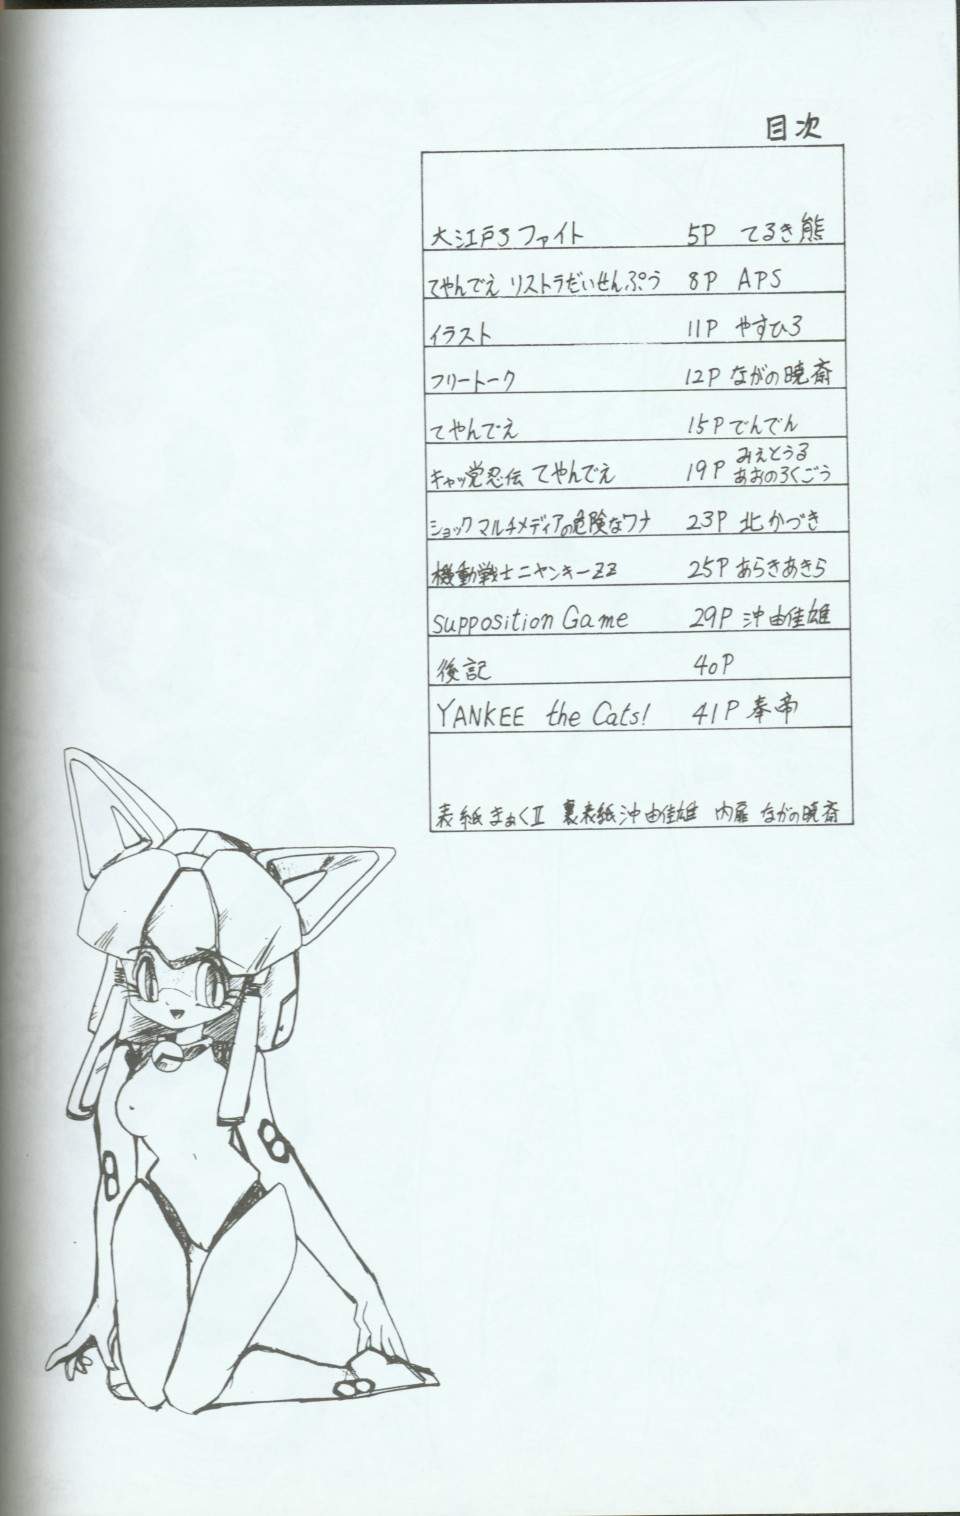 目次
大江戸ろファイト 5P てるき熊
てやんでえ リストラだいせんぷう 8P APS
イラスト 11P やすひろ
フリートーク 12P ながの暁斎
てやんでえ 15P でんでん
キャッ党忍伝 てやんでえ 19P みえとうる
あおのろくごう
ショック マルチメディアの危険なワナ 23P 北かづき
機動戦士ニャンキーZZ 25P あらきあきら
Supposition Game 29P 沖由佳雄
後記 40P
YANKEE the Cats! 41P 奉帝
表紙 まぁくII 裏表紙 沖由佳雄 内扉 ながの暁斎